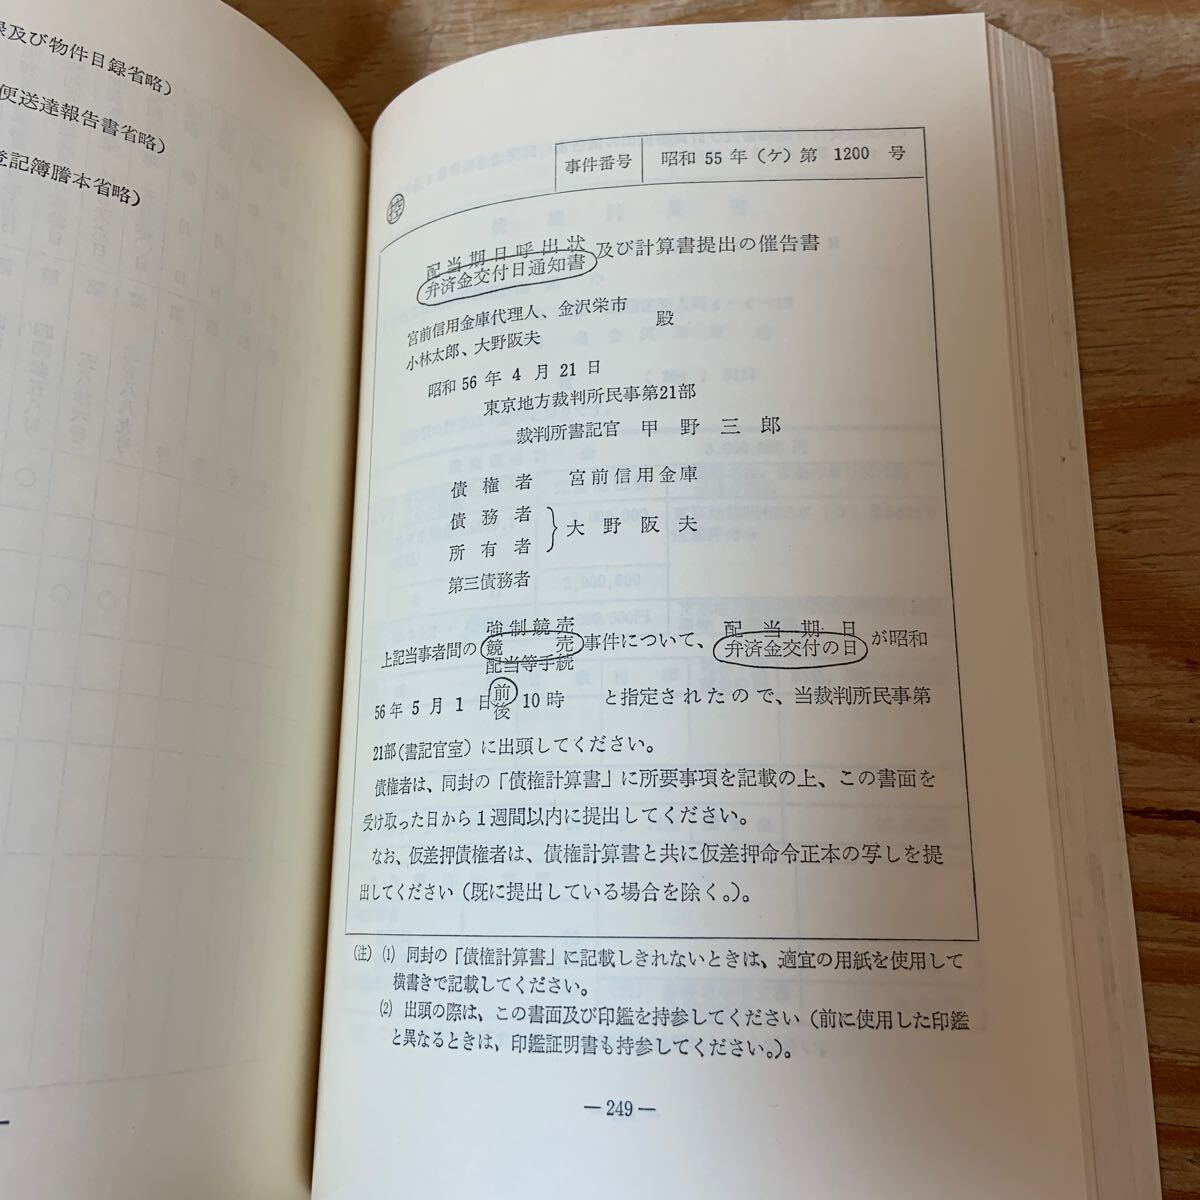 及び物件目録省略)
便送達報告書省略)
登記簿謄本省略)
事件番号 昭和 55 年 (ケ) 第 1200 号
控
配当期日呼出状
弁済金交付日通知書
及び計算書提出の催告書
宮前信用金庫代理人、金沢栄市
小林太郎、大野阪夫
殿
昭和 56 年 4 月 21 日
東京地方裁判所民事第21部
裁判所書記官 甲野三郎
債権者 宮前信用金庫
債務者
所有者
大野阪夫
第三債務者
強制競売
上記当事者間の 競売 事件について、
配当等手続
配当期日
弁済金交付の日
が昭和
56 年 5 月 1 日 前 10 時 と指定されたので、当裁判所民事第
後
21部(書記官室)に出頭してください。
債権者は、同封の「債権計算書」に所要事項を記載の上、この書面を
受け取った日から1週間以内に提出してください。
なお、仮差押債権者は、債権計算書と共に仮差押命令正本の写しを提
出してください(既に提出している場合を除く。)。
(注) (1) 同封の「債権計算書」に記載しきれないときは、適宜の用紙を使用して
横書きで記載してください。
(2) 出頭の際は、この書面及び印鑑を持参してください(前に使用した印鑑
と異なるときは、印鑑証明書も持参してください。)。
— 249 —